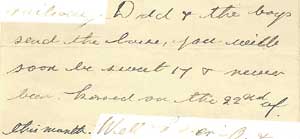 Dad & the boys
send the love, you will
soon be sweet 17 & never
been kissed on the 22nd of
this month. Well